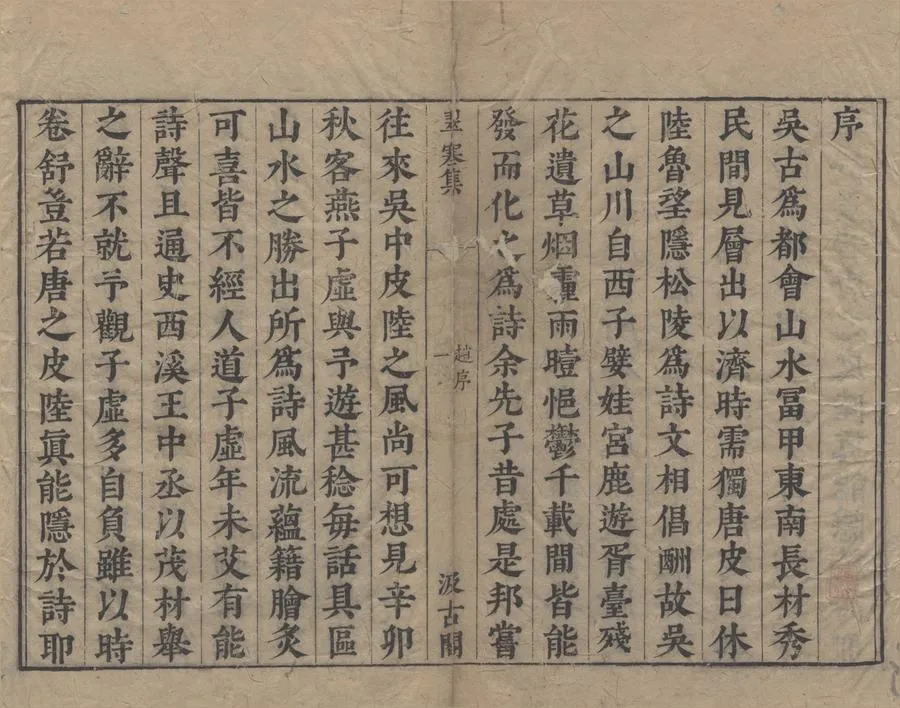 序
吳古爲都會山水冨甲東南長材秀
民間見層出以濟時需獨唐皮日休
陸魯望隱松陵爲詩文相倡酬故吳
之山川自西子嬖娃宮鹿遊胥臺殘
花遺草烟霾雨曀悒鬱千載間皆能
發而化之爲詩余先子昔處是邦嘗
翠寒集
趙序
一
汲古閣
往來吳中皮陸之風尚可想見辛卯
秋客燕子虛與予遊甚稔每話具區
山水之勝出所爲詩風流蘊籍膾炙
可喜皆不經人道子虛年未艾有能
詩聲且通史西溪王中丞以茂材舉
之辭不就予觀子虛多自負雖以時
卷舒豈若唐之皮陸眞能隱於詩耶